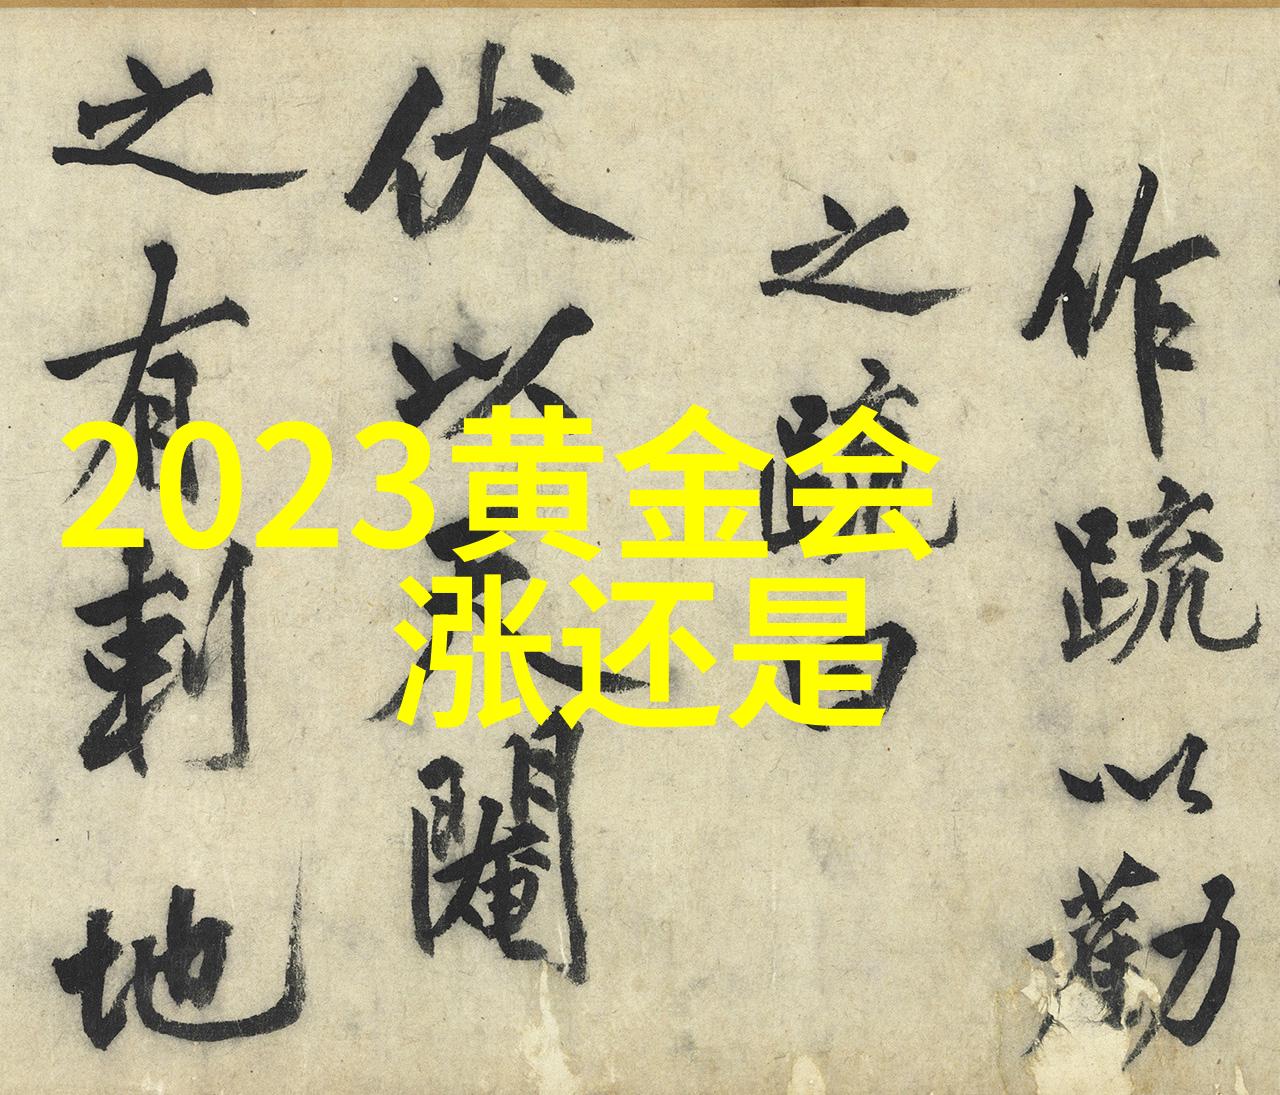 作疏以勸
之疏曰
伏以天閹
之有刺地
2023黄金会
涨还是